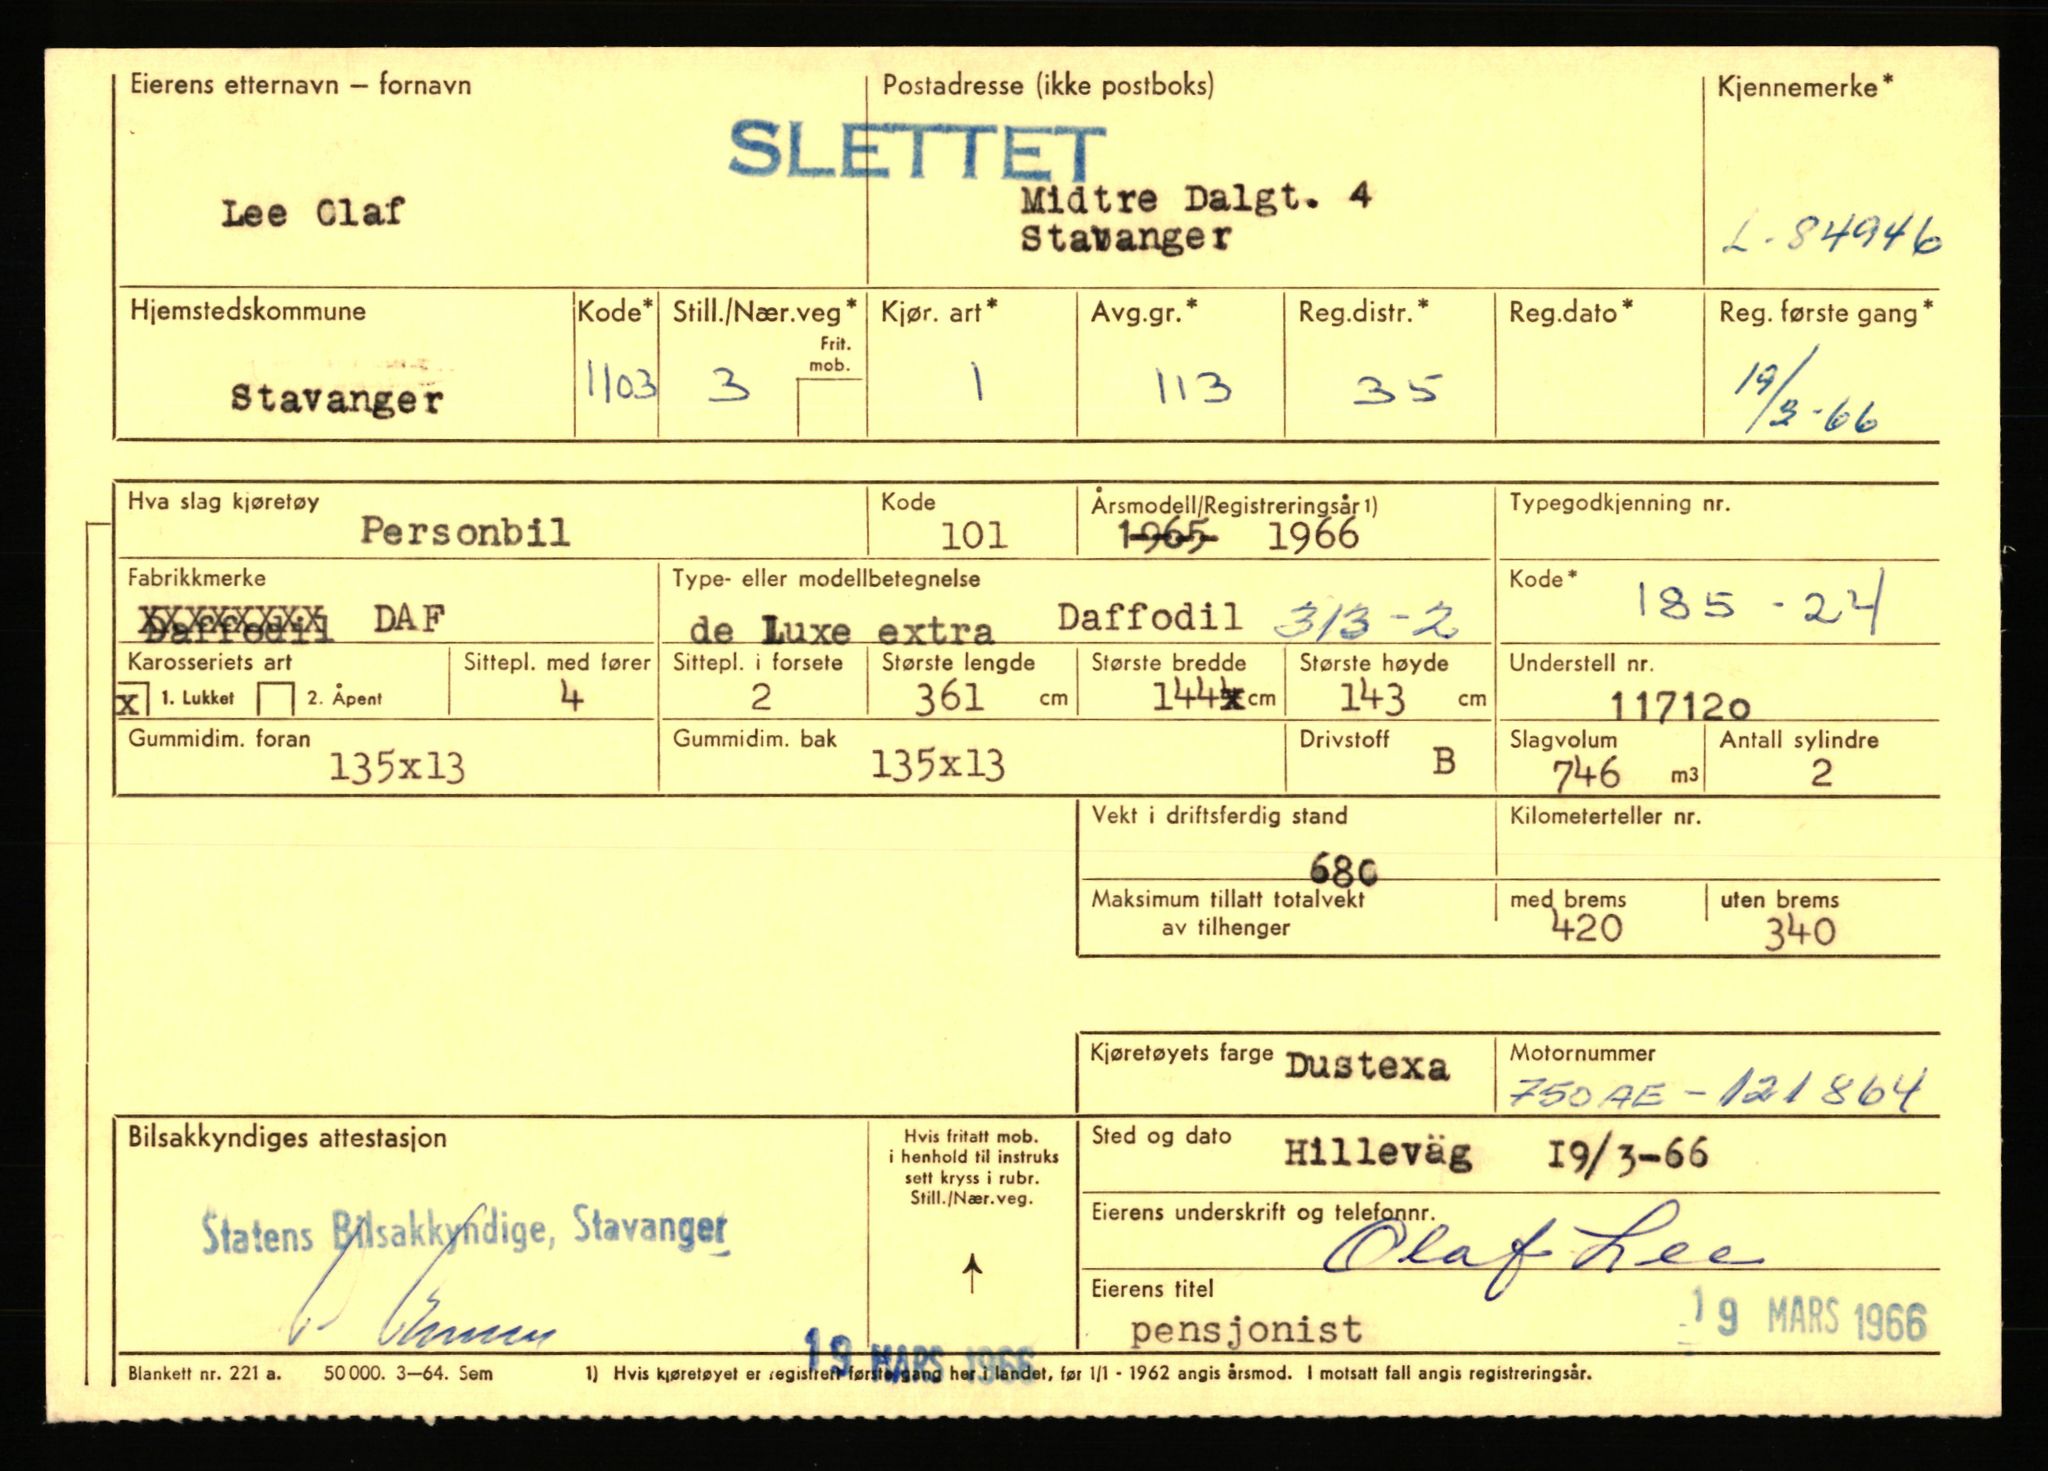 Eierens etternavn – fornavn Postadresse (ikke postboks) Kjennemerke*
SLETTET
Lee Olaf Midtre Dalgt. 4
Stavanger L-84946
Hjemstedskommune Kode* Still./Nær.veg* Kjør. art* Avg.gr.* Reg.distr.* Reg.dato* Reg. første gang*
Frit.
mob.
Stavanger 1103 3 1 113 35 19/3-66
Hva slag kjøretøy Kode Årsmodell/Registreringsår 1) Typegodkjenning nr.
Personbil 101 1965 1966
Fabrikkmerke Type- eller modellbetegnelse Kode*
Daffodil DAF de Luxe extra Daffodil 313-2 185-24
Karosseriets art Sittepl. med fører Sittepl. i forsete Største lengde Største bredde Største høyde Understell nr.
x 1. Lukket 2. Åpent 4 2 361 cm 144 cm 143 cm 117120
Gummidim. foran Gummidim. bak Drivstoff Slagvolum Antall sylindre
135x13 135x13 B 746 m3 2
Vekt i driftsferdig stand Kilometerteller nr.
680
Maksimum tillatt totalvekt med brems uten brems
av tilhenger 420 340
Kjøretøyets farge Dustexa Motornummer
750AE-121864
Bilsakkyndiges attestasjon Hvis fritatt mob. Sted og dato Hilleväg I9/3-66
i henhold til instruks
sett kryss i rubr.
Still./Nær.veg.
Statens Bilsakkyndige, Stavanger Eierens underskrift og telefonnr.
Olaf Lee
Eierens titel
pensjonist 19 MARS 1966
19 MARS 1966
Blankett nr. 221 a. 50 000. 3–64. Sem 1) Hvis kjøretøyet er registrert første gang her i landet, før 1/1 - 1962 angis årsmod. I motsatt fall angis registreringsår.